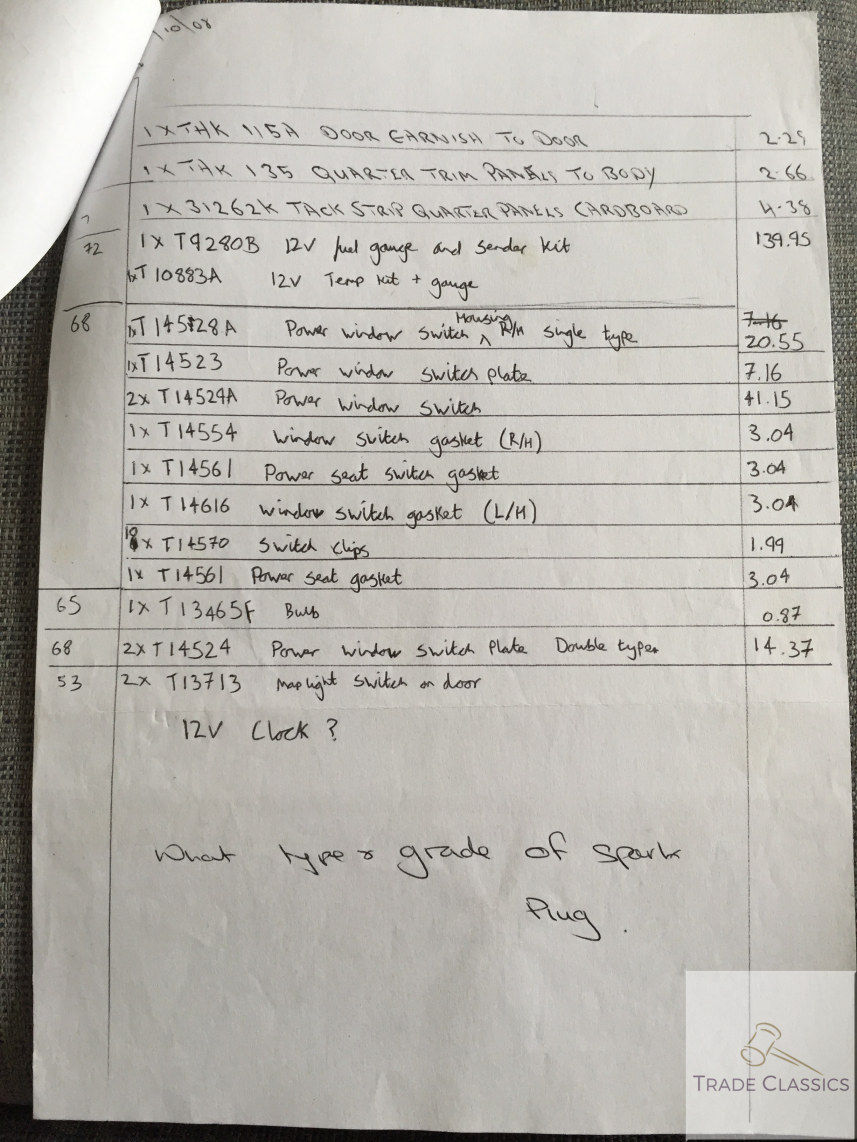 10/08
1 X THK 115A DOOR GARNISH TO DOOR 2.29
1 X THK 135 QUARTER TRIM PANELS TO BODY 2.66
1 X 31262K TACK STRIP QUARTER PANELS CARDBOARD 4.38
72 1 X T9280B 12V fuel gauge and sender kit 139.95
1x T10883A 12V Temp kit + gauge
68 1x T14528A Power window switch Housing R/H single type 7.16 20.55
1x T14523 Power window switch plate 7.16
2x T14529A Power window switch 41.15
1x T14554 window switch gasket (R/H) 3.04
1x T14561 Power seat switch gasket 3.04
1x T14616 window switch gasket (L/H) 3.04
10x T14570 Switch clips 1.99
1x T14561 Power seat gasket 3.04
65 1x T13465F Bulb 0.87
68 2x T14524 Power window switch plate Double type 14.37
53 2x T13713 map light switch on door
12V Clock ?
What type & grade of spark
Plug.
TRADE CLASSICS